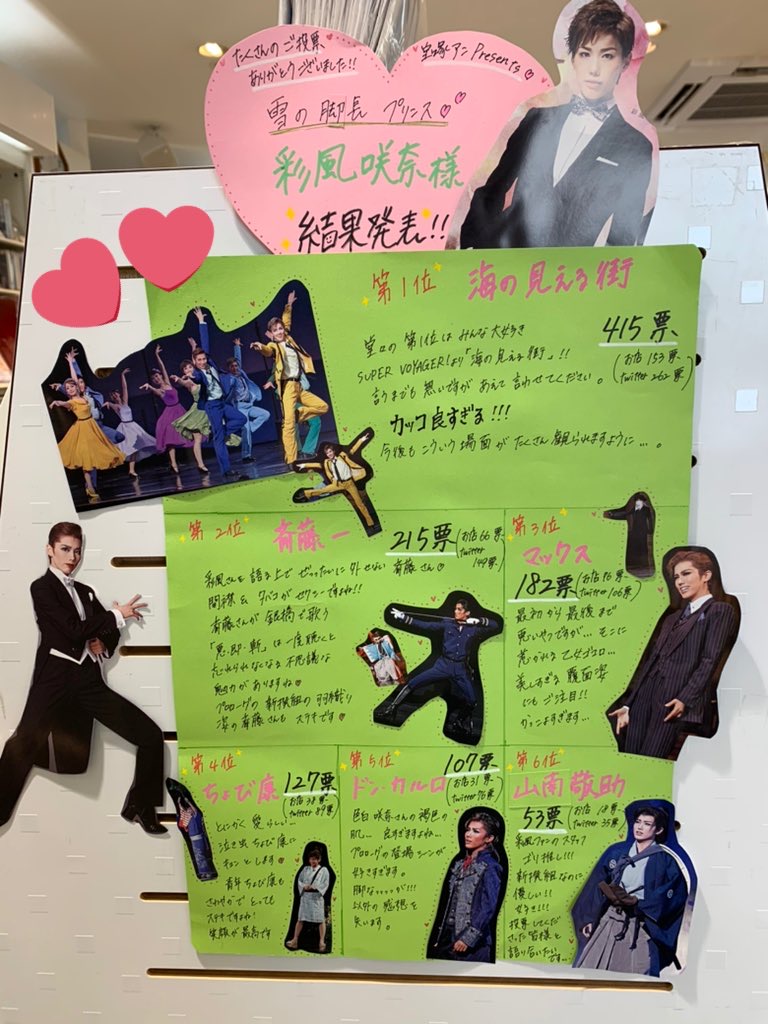 たくさんのご投票
ありがとうございました!!
宝塚アン Presents
雪の脚長プリンス
彩風咲奈様
結果発表!!
第1位 海の見える街
415票
(お店 153票
twitter 262票)
堂々の第1位はみんな大好き
SUPER VOYAGER!より「海の見える街」!!
言うまでも無いですがあえて言わせてください。
カッコ良すぎる!!!
今後もこういう場面がたくさん観られますように…。
第2位 斎藤一
215票
(お店 66票
twitter 149票)
彩風さんを語る上でぜったいに外せない斎藤さん
関係& タバコがセクシーですよね!!
斎藤さんが銀橋で歌う
「悪・即・斬」は一度聴くと
忘れられなくなる不思議な
魅力がありますね
プロローグの新撰組の羽織り
姿の斎藤さんもステキです
第3位
マックス
182票
(お店 76票
twitter 106票)
最初から最後まで
悪いやつですが…そこに
惹かれる乙女ゴコロ…
美しすぎる覆面姿
にもご注目!!
かっこよすぎます…
第4位
ちょび康
127票
(お店 38票
twitter 89票)
とにかく愛らしい…
泣き虫ちょび康に
キュンとします
青年ちょび康も
さわやかでとっても
ステキですね!
笑顔が最高です
第5位
ドン・カルロ
107票
(お店 31票
twitter 76票)
色白咲奈さんの褐色の
肌…良すぎますよね…
プロローグの登場シーンが
好きすぎます。
脚なっっっっが!!!
以外の感想を
失います。
第6位
山南敬助
53票
(お店 18票
twitter 35票)
彩風ファンのスタッフ
ゴリ推し!!!
新撰組なのに
優しい!!
好き!!!
投票してくだ
さった皆様と
語り合いたい
です…